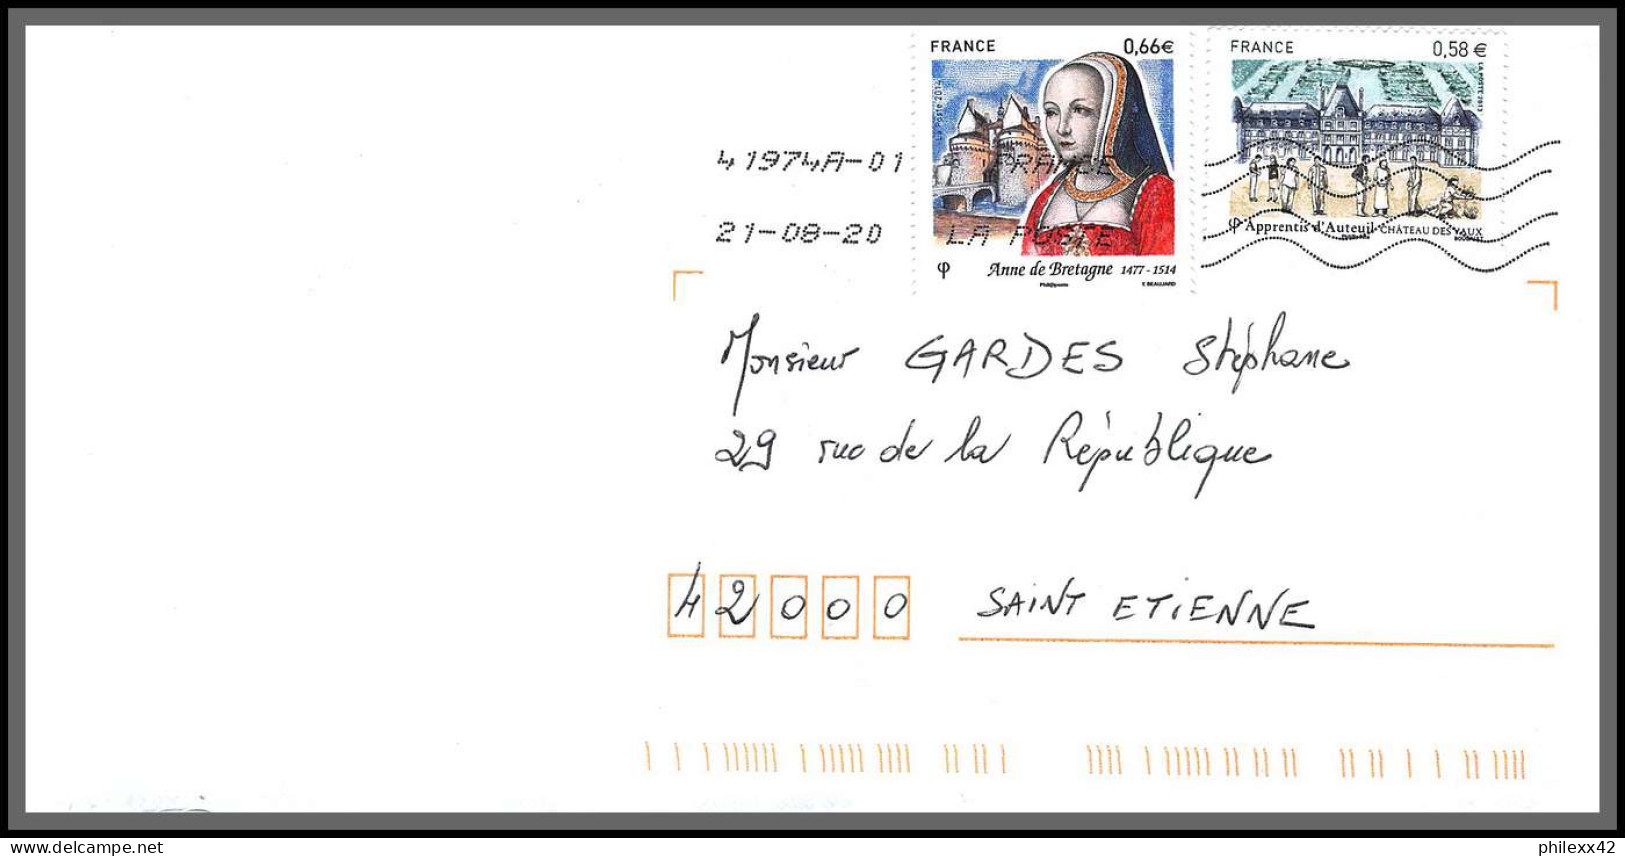 FRANCE 0,66€
La Poste 2014
Anne de Bretagne 1477 - 1514
Phil@poste E. BEAUJARD
FRANCE 0,58 €
LA POSTE 2013
Apprentis d'Auteuil - CHÂTEAU DES VAUX
BOUSQUET
41974A-01 FRANCE
21-08-20 LA POSTE
Monsieur GARDES Stéphane
29 rue de la République
42000 SAINT ETIENNE
delcampe.net
philexx42